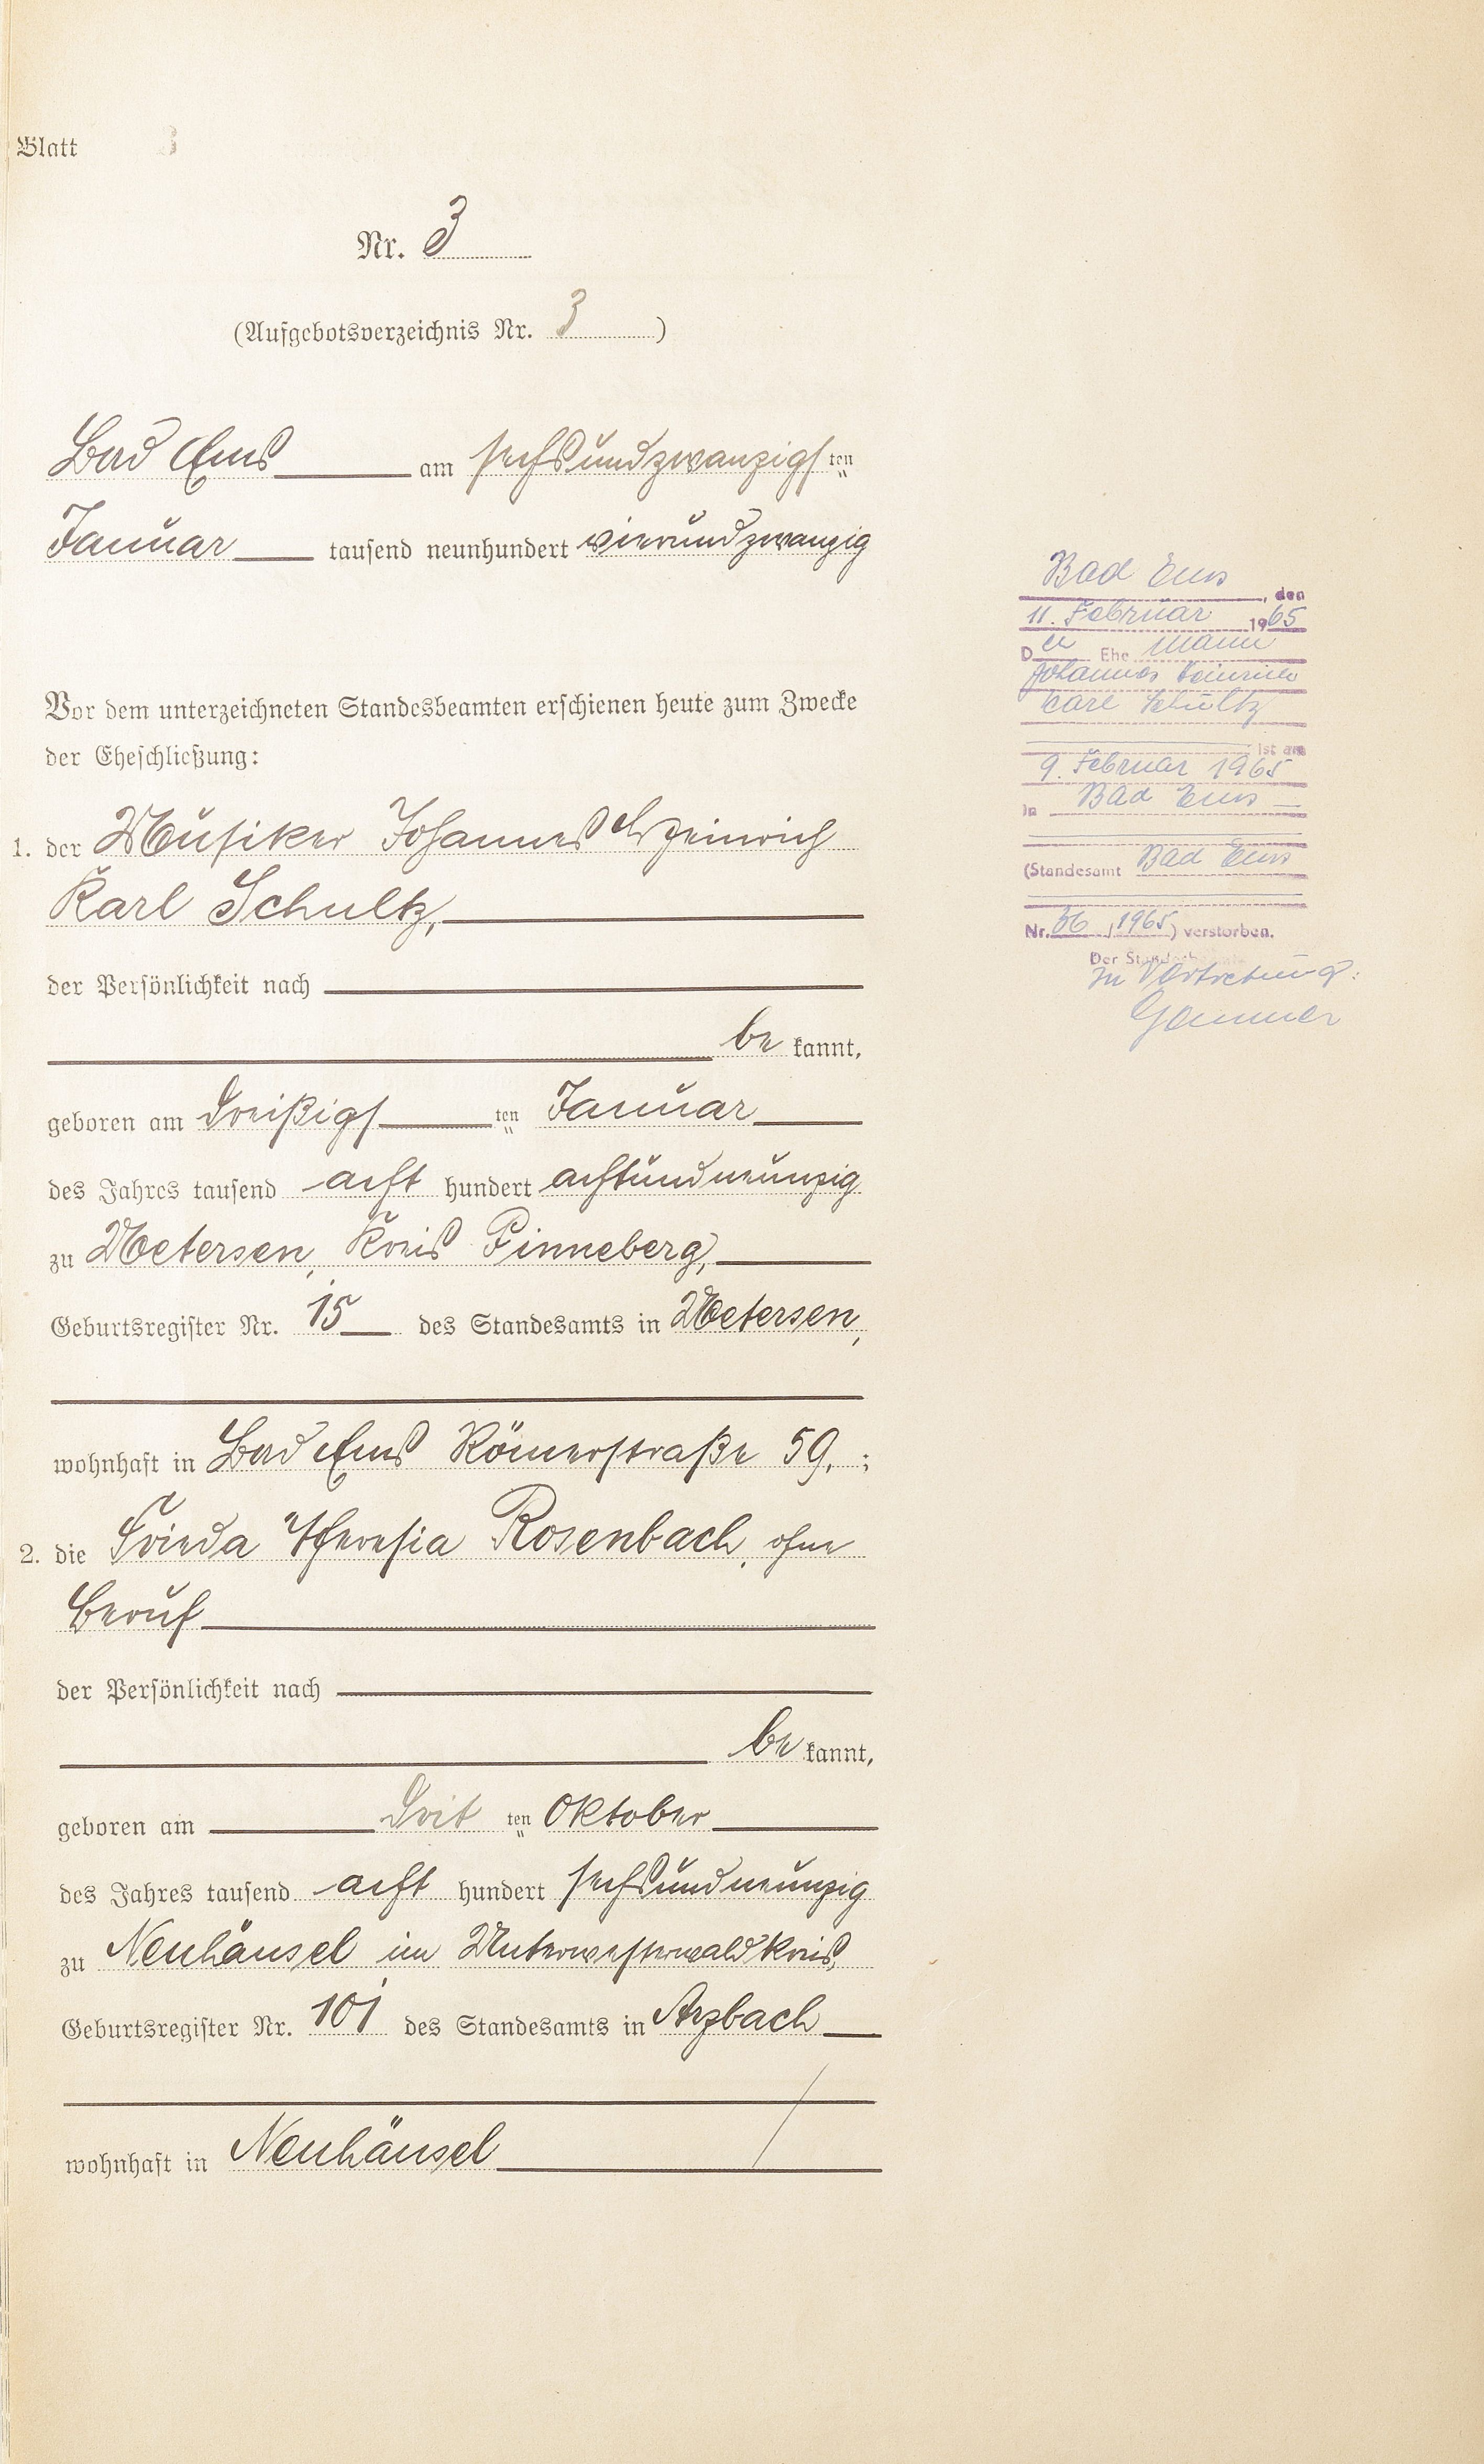 Blatt 3
Nr. 3
(Aufgebotsverzeichnis Nr. 3)
Bad Ems am sechsundzwanzigsten
Januar tausend neunhundert vierundzwanzig
Vor dem unterzeichneten Standesbeamten erschienen heute zum Zwecke
der Eheschließung:
1. der Musiker Johannes Heinrich
Karl Schultz,
der Persönlichkeit nach
bekannt,
geboren am dreißigsten Januar
des Jahres tausend acht hundert achtundneunzig
zu Uetersen, Kreis Pinneberg,
Geburtsregister Nr. 15 des Standesamts in Uetersen,
wohnhaft in Bad Ems Römerstraße 59. ;
2. die Frieda Theresia Rosenbach, ohne
Beruf
der Persönlichkeit nach
bekannt,
geboren am dritten Oktober
des Jahres tausend acht hundert sechsundneunzig
zu Neuhäusel im Unterwesterwaldkreis,
Geburtsregister Nr. 101 des Standesamts in Arzbach
wohnhaft in Neuhäusel
Bad Ems, den
11. Februar 1965
Der Ehemann
Johannes Heinrich
Carl Schultz
ist am
9. Februar 1965
in Bad Ems
(Standesamt Bad Ems
Nr. 36/1965) verstorben.
Der Standesbeamte
In Vertretung: